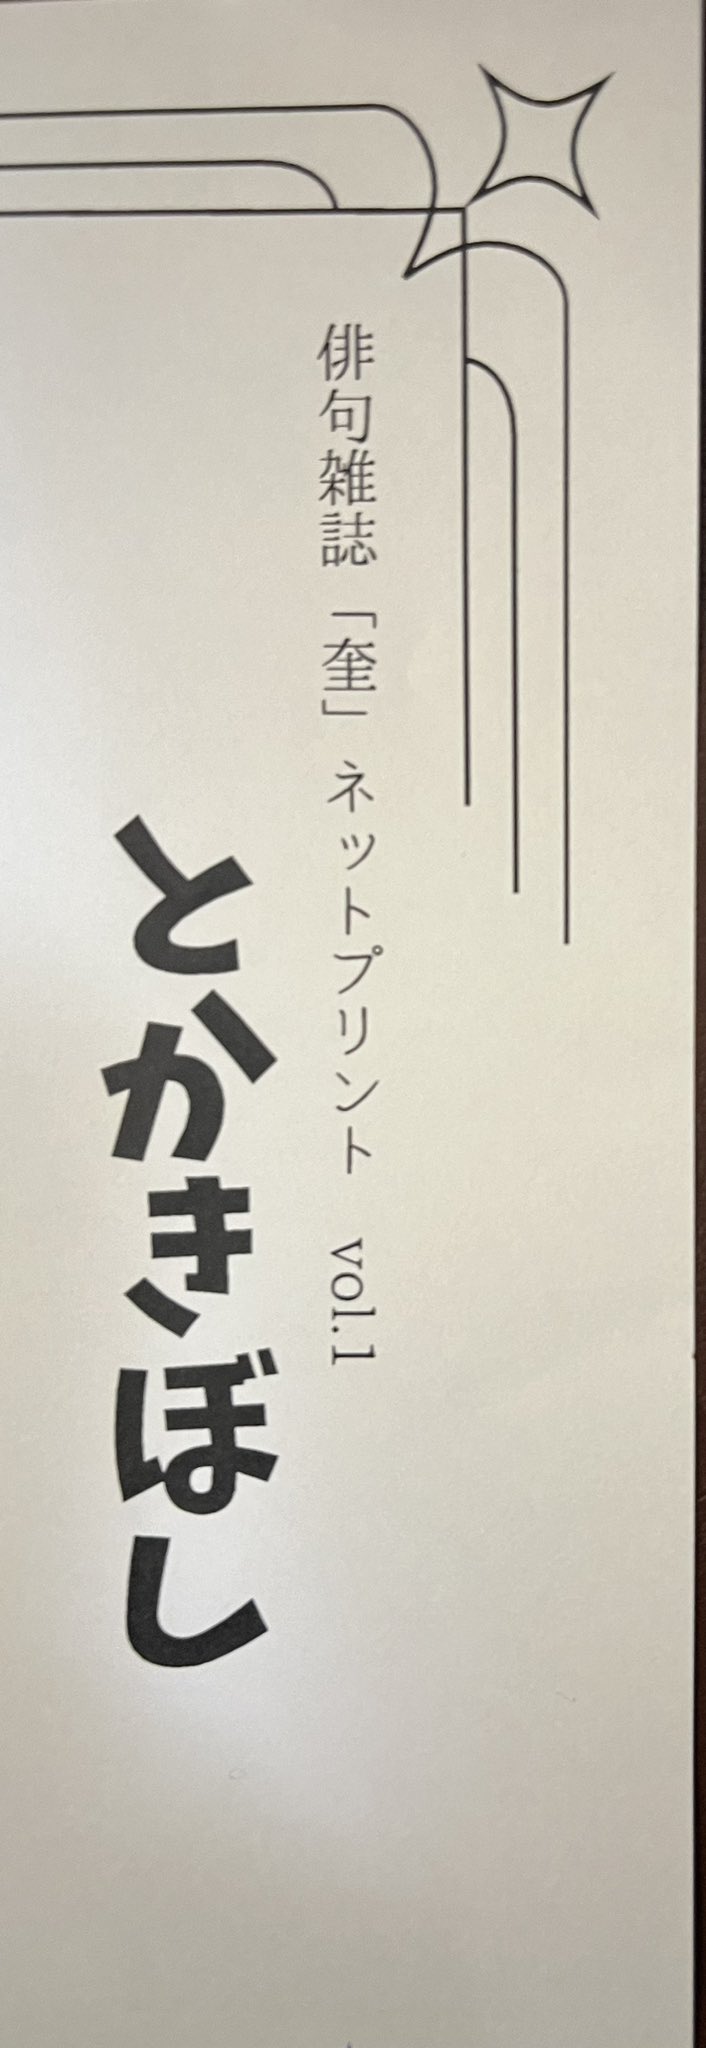 俳句雑誌「奎」ネットプリント　vol.1
とかきぼし